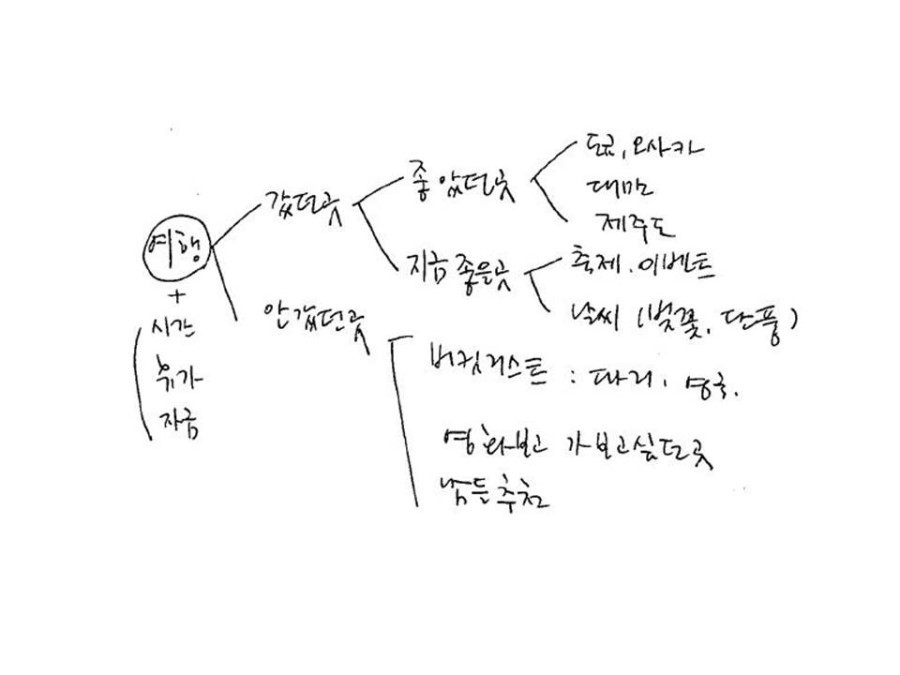 여행
+
시간
휴가
자금
갔던곳
좋았던곳
도쿄, 오사카
대만
제주도
지금 좋은곳
축제, 이벤트
날씨 (벚꽃, 단풍)
안갔던곳
버킷리스트 : 파리, 영국.
영화보고 가보고싶던곳
남들 추천